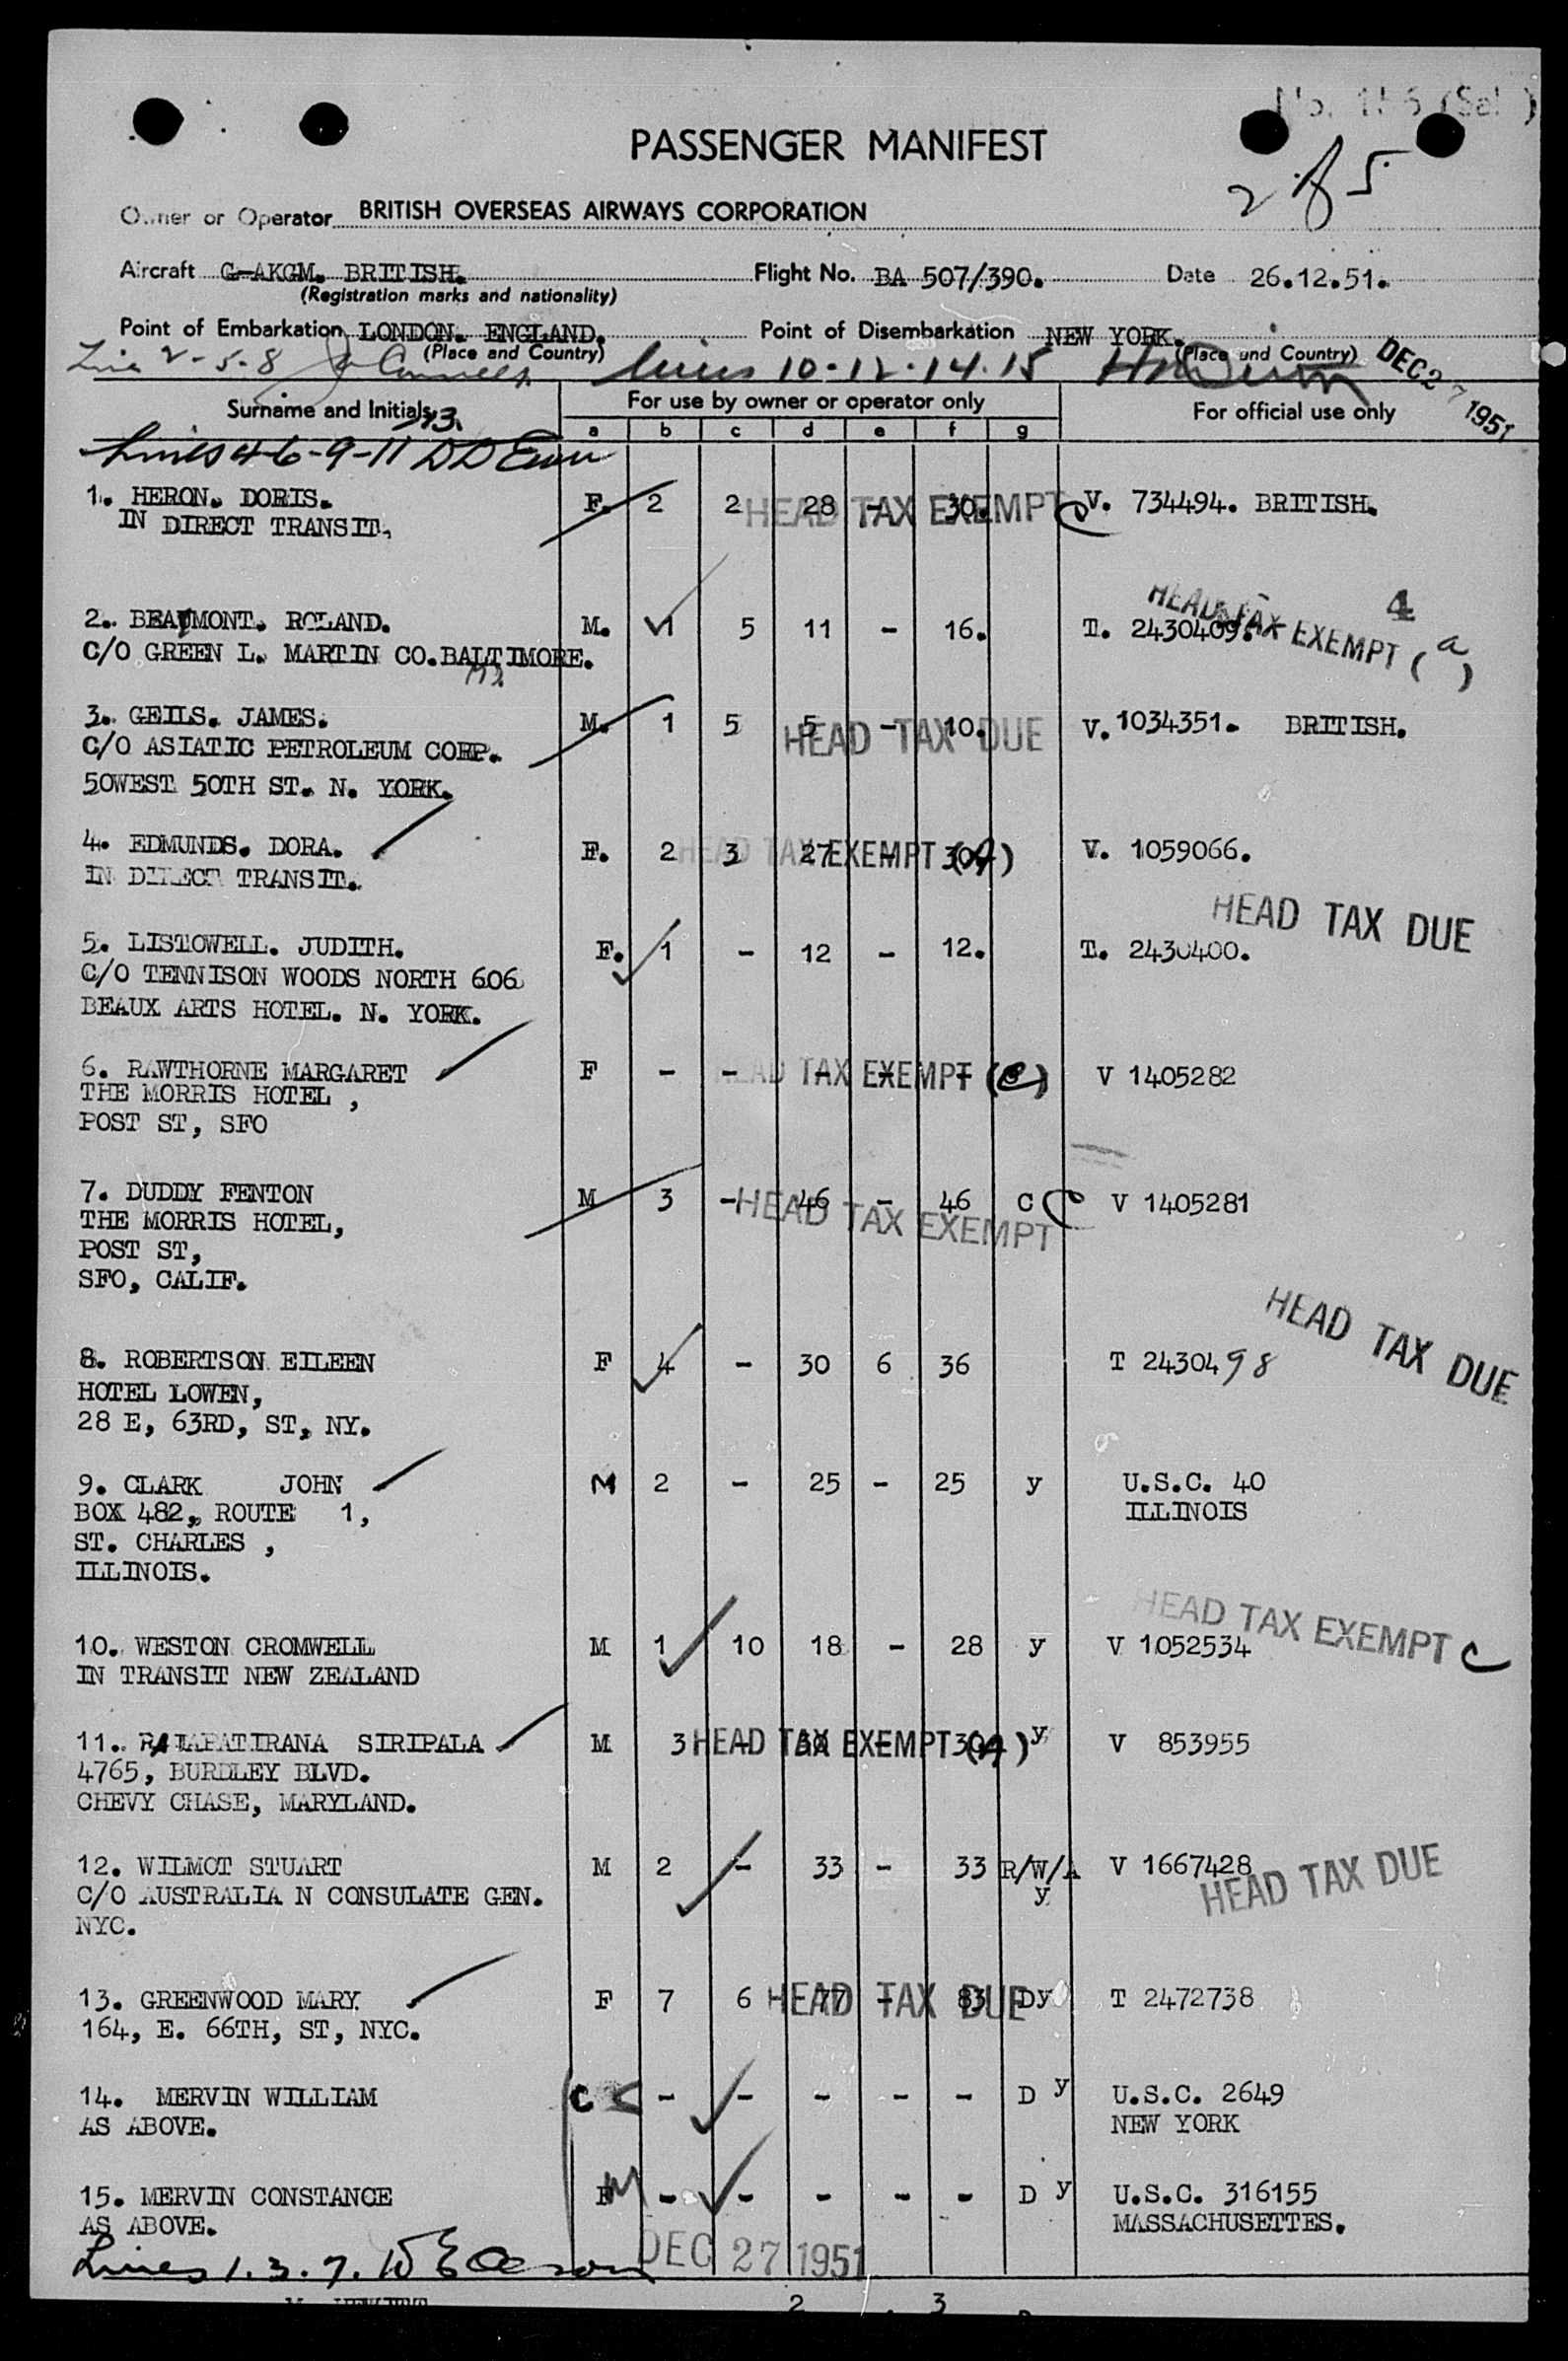 PASSENGER MANIFEST
2 of 5.
Owner or Operator BRITISH OVERSEAS AIRWAYS CORPORATION
Aircraft G-AKGM. BRITISH. Flight No. BA 507/390. Date 26.12.51.
(Registration marks and nationality)
Point of Embarkation LONDON. ENGLAND. Point of Disembarkation NEW YORK.
(Place and Country) (Place and Country)
Line 2-5-8 Lines 10-12-14-15 DEC 27 1951
Surname and Initials For use by owner or operator only For official use only
a b c d e f g
Lines 4-6-9-11
1. HERON. DORIS. F. 2 2 28 - 30. V. 734494. BRITISH.
HEAD TAX EXEMPT C
IN DIRECT TRANSIT.
HEAD TAX EXEMPT (a)
4
2. BEAUMONT. ROLAND. M. 1 5 11 - 16. T. 2430409.
C/O GREEN L. MARTIN CO. BALTIMORE.
Md.
3. GEILS. JAMES. M. 1 5 5 - 10. V. 1034351. BRITISH.
HEAD TAX DUE
C/O ASIATIC PETROLEUM CORP.
50WEST 50TH ST. N. YORK.
4. EDMUNDS. DORA. F. 2 3 27 - 30. V. 1059066.
HEAD TAX EXEMPT (A)
IN DIRECT TRANSIT.
HEAD TAX DUE
5. LISTOWELL. JUDITH. F. 1 - 12 - 12. T. 2430400.
C/O TENNISON WOODS NORTH 606
BEAUX ARTS HOTEL. N. YORK.
6. RAWTHORNE MARGARET F - - - - - V 1405282
HEAD TAX EXEMPT (C)
THE MORRIS HOTEL ,
POST ST, SFO
7. DUDDY FENTON M 3 - 46 - 46 C C V 1405281
HEAD TAX EXEMPT
THE MORRIS HOTEL,
POST ST,
SFO, CALIF.
HEAD TAX DUE
8. ROBERTSON EILEEN F 4 - 30 6 36 T 2430498
HOTEL LOWEN,
28 E, 63RD, ST, NY.
9. CLARK JOHN M 2 - 25 - 25 y U.S.C. 40
BOX 482, ROUTE 1, ILLINOIS
ST. CHARLES ,
ILLINOIS.
HEAD TAX EXEMPT C
10. WESTON CROMWELL M 1 10 18 - 28 y V 1052534
IN TRANSIT NEW ZEALAND
11. SIRIPALA M 3 - 30 - 30 y V 853955
HEAD TAX EXEMPT (A)
4765, BURDLEY BLVD.
CHEVY CHASE, MARYLAND.
12. WILMOT STUART M 2 - 33 - 33 R/W/A V 1667428
C/O AUSTRALIA N CONSULATE GEN. y HEAD TAX DUE
NYC.
13. GREENWOOD MARY F 7 6 77 - 83 Dy T 2472738
HEAD TAX DUE
164, E. 66TH, ST, NYC.
14. MERVIN WILLIAM C - - - - - D y U.S.C. 2649
AS ABOVE. NEW YORK
15. MERVIN CONSTANCE M - - - - - D y U.S.C. 316155
AS ABOVE. MASSACHUSETTES.
Lines 1.3.7. DEC 27 1951
2 3